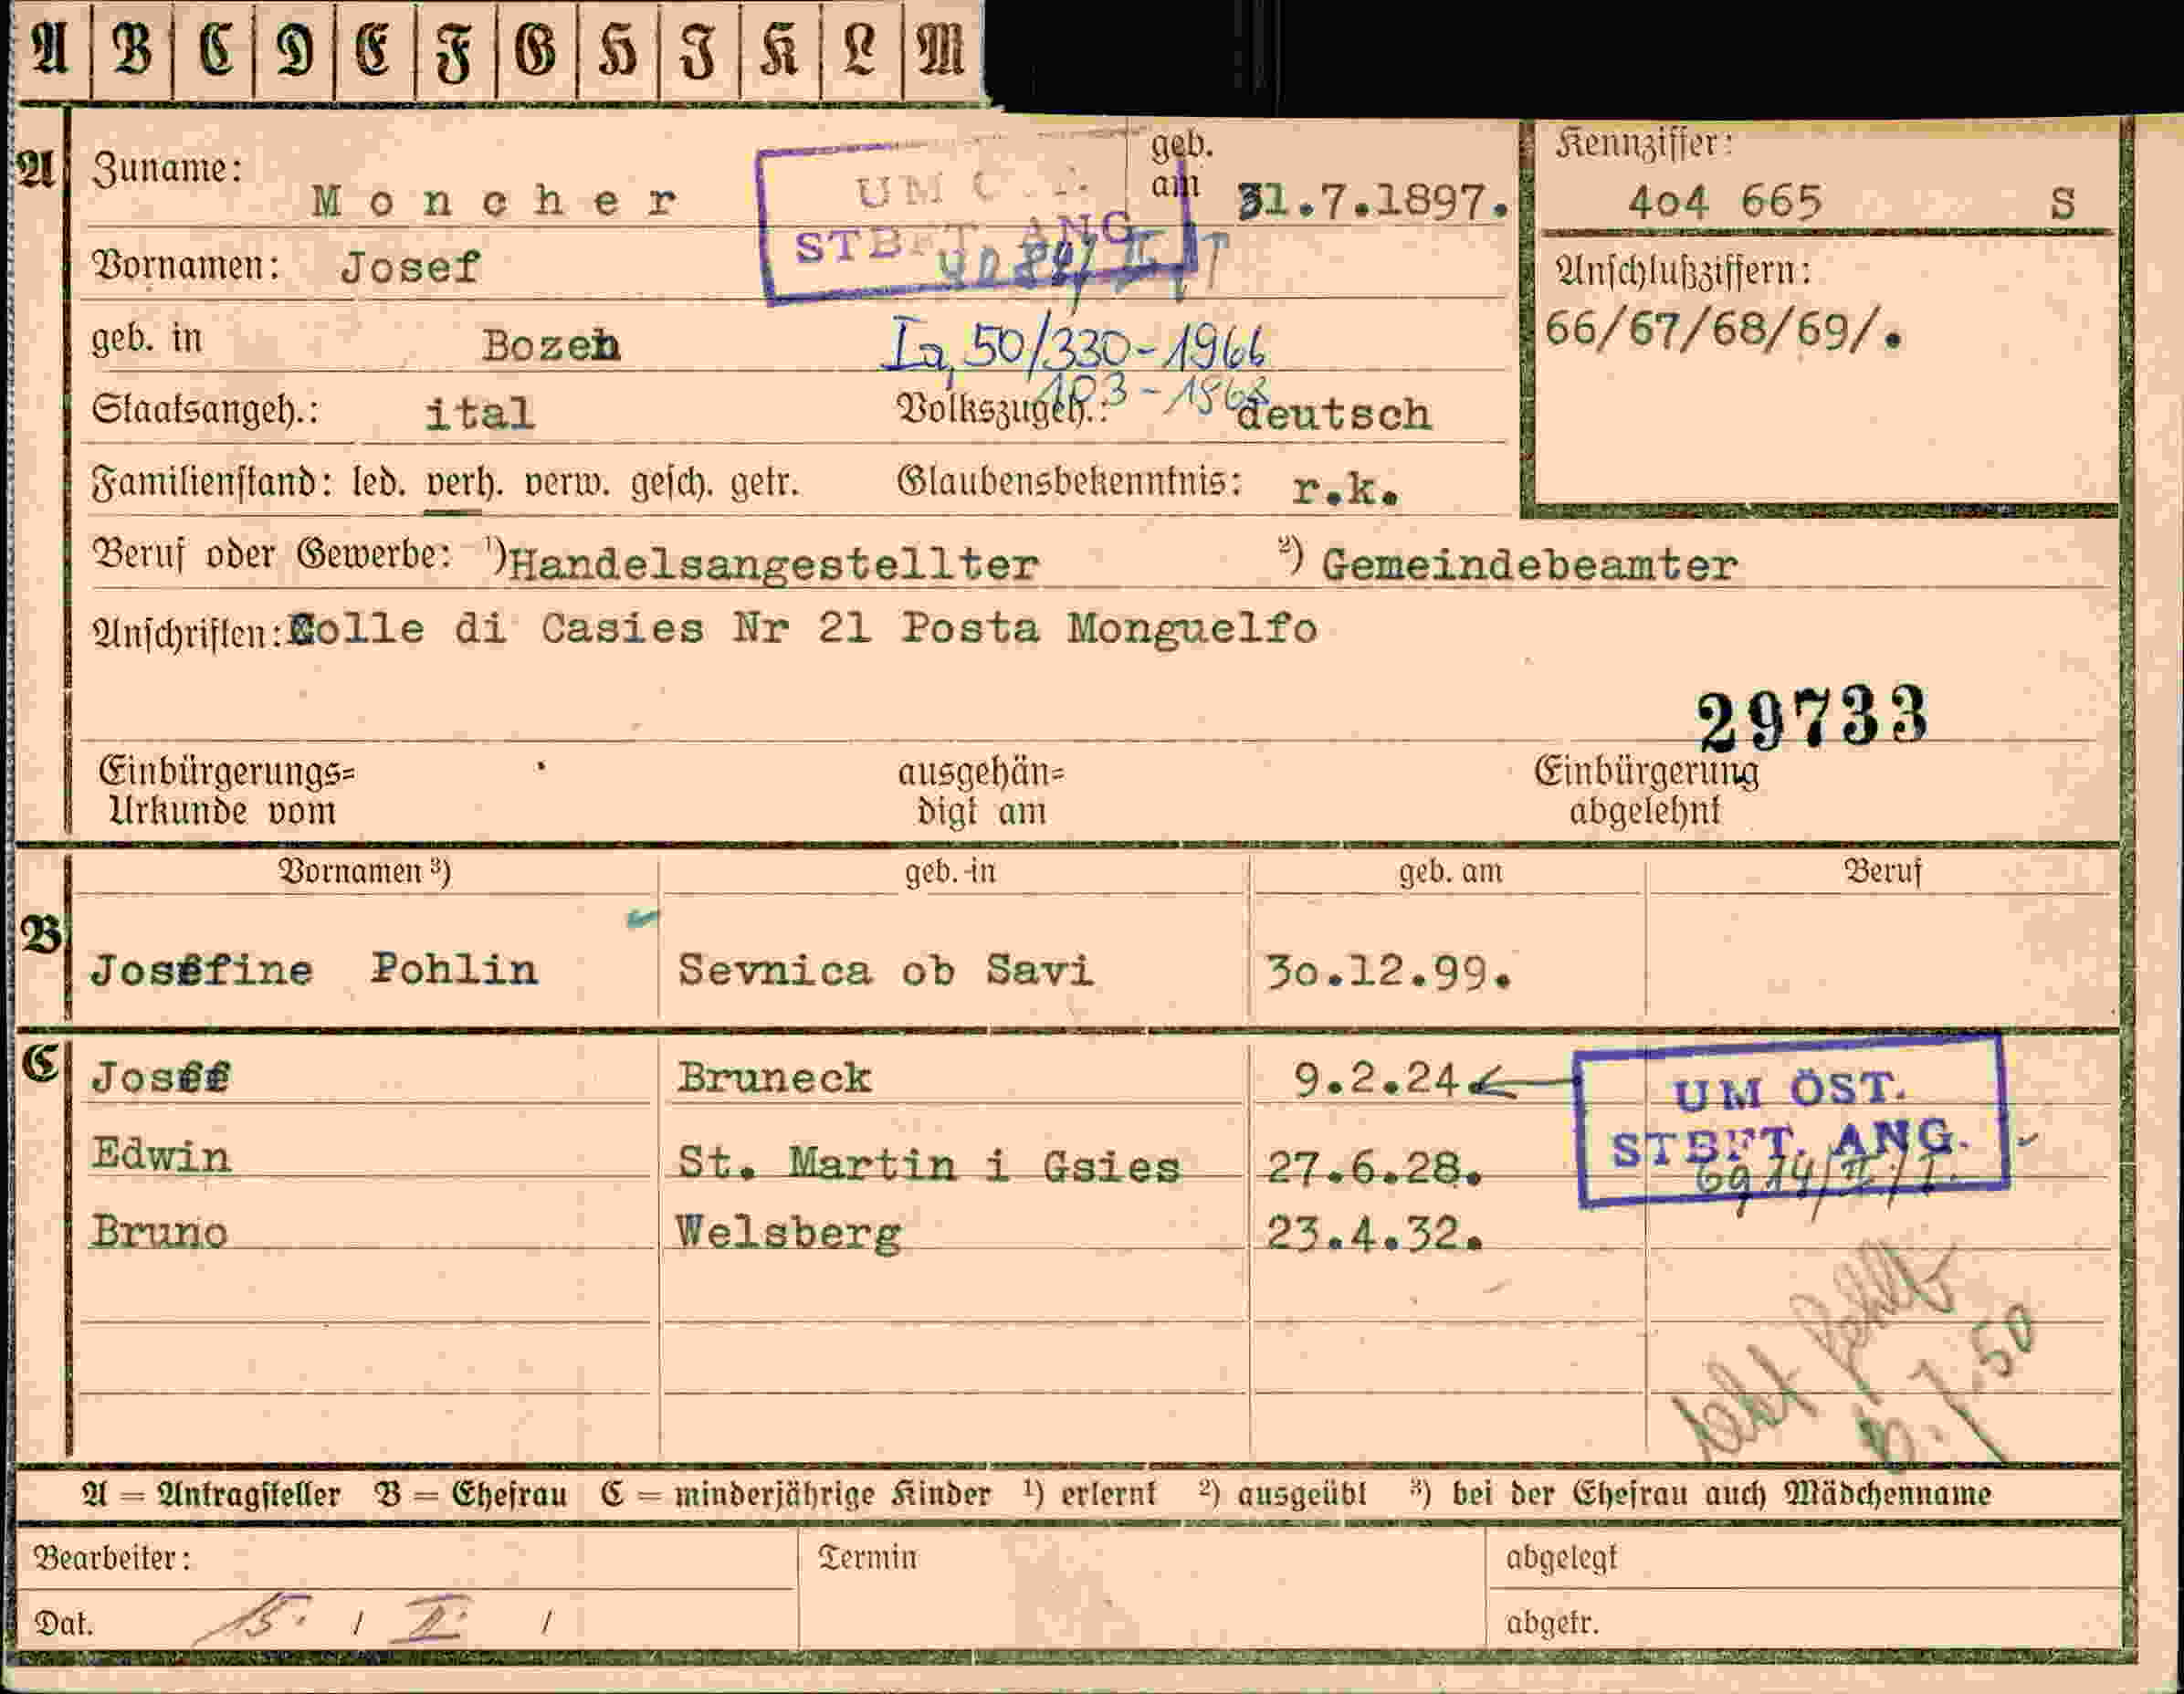 A B C D E F G H I K L M
A Zuname: Moncher geb. am 31.7.1897. Kennziffer: 404 665 S
STBFT. ANG
Vornamen: Josef Anschlußziffern:
geb. in Bozen Ia, 50/330-1966 66/67/68/69/.
103-1968
Staatsangeh.: ital Volkszugeh.: deutsch
Familienstand: led. verh. verw. gesch. getr. Glaubensbekenntnis: r.k.
Beruf oder Gewerbe: ¹) Handelsangestellter ²) Gemeindebeamter
Anschriften: Colle di Casies Nr 21 Posta Monguelfo
29733
Einbürgerungs= ausgehän= Einbürgerung
Urkunde vom digt am abgelehnt
Vornamen ³) geb. in geb. am Beruf
B Josefine Pohlin Sevnica ob Savi 30.12.99.
C Josef Bruneck 9.2.24 UM ÖST.
Edwin St. Martin i Gsies 27.6.28. STBFT. ANG.
6914/II/I.
Bruno Welsberg 23.4.32.
fehlt
50
A = Antragsteller B = Ehefrau C = minderjährige Kinder ¹) erlernt ²) ausgeübt ³) bei der Ehefrau auch Mädchenname
Bearbeiter: Termin abgelegt
Dat. 15. / II. / abgetr.